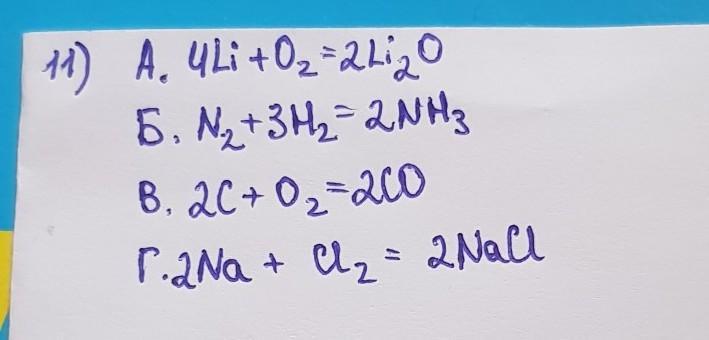 11) А. 4Li + O₂ = 2Li₂O
Б. N₂ + 3H₂ = 2NH₃
В. 2C + O₂ = 2CO
Г. 2Na + Cl₂ = 2NaCl